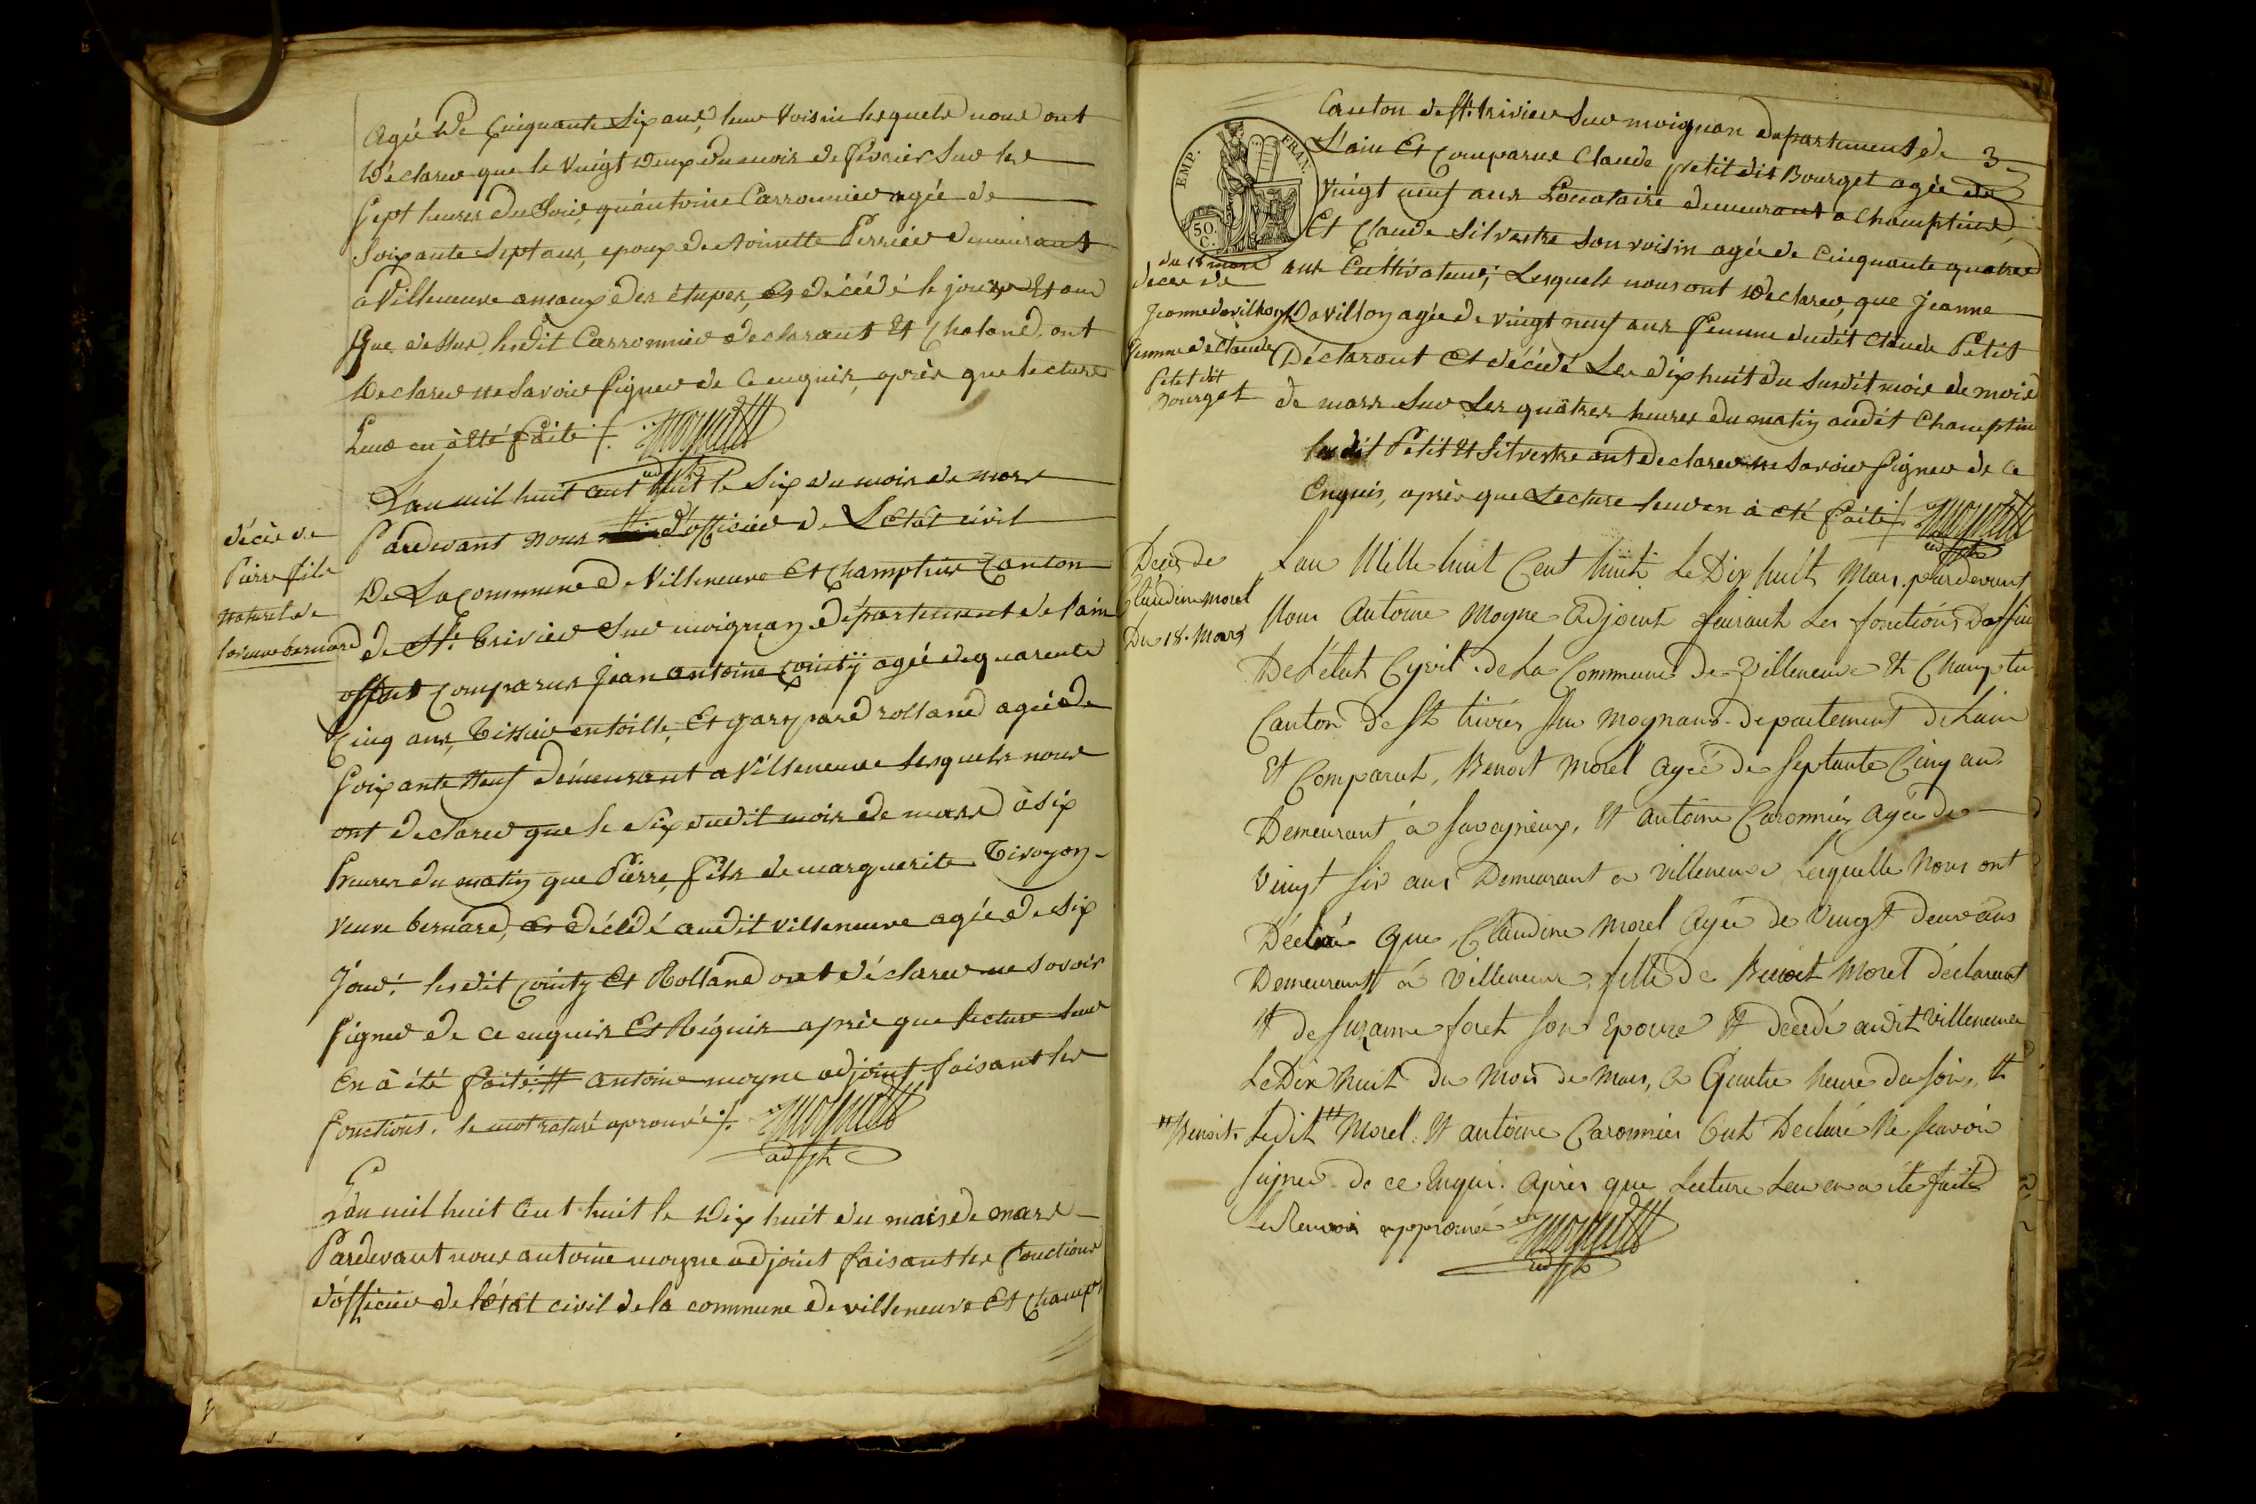 agée de cinquante six ans, leur voisin lesquels nous ont
déclarer que le vingt deux du mois de février sur les
sept heures du soir, qu'antoine Carronnier agée de
soixante sept ans, epoux de Perrier demeurant
a Villeneuve hameaux des étupes, est décédé le jour et an
que dessus, lesdit Carronnier declarant et Chaland, ont
declarer ne savoir signer de ce enquis, après que lecture
leur en à été faite ./.
adjt
L'an mil huit cent huit le six du mois de mars
Pardevant nous d'officier de L'etat civil
De La commune de Villeneuve et Champtein Canton
de St. Trivier sur moignan département de l'ain
offont comparus jean antoine cointy agée de quarente
cinq ans, Tissier en toille, et gaspard rolland agée de
soixante neuf demeurant a Villeneuve Lesquels nous
ont declarer que le six dudit mois de mars à six
heures du matin que Pierre, fils de marguerite Tivoyon
veuve bernard, est décédé audit villeneuve agée de six
jour. lesdit cointy et Rolland ont déclarer ne savoir
signer de ce enquis et Réquis après que lecture leur
en à été faite. antoine moyne adjoint faisant les
fonctions. le mot raturé aprouvé ./.
adjt
décès de
Pierre fils
naturel de
la veuve bernard
L'an mil huit cent huit le dix huit du mois de mars
Pardevant nous antoine moyne adjoint faisant les fonctions
d'officier de l'état civil de la commune de villeneuve et Champt
3
EMP. FRAN.
50.
C.
Canton de St. trivier sur moignan departement de
L'ain et comparus Claude petit dit Bourget agée de
vingt neuf ans Locataire demeurant a Champtein
Et Claude Silvestre son voisin agée de cinquante quatre
ans Cultivateur; Lesquels nous ont declarer, que jeanne
Davillon agée de vingt neuf ans femme dudit Claude Petit
Déclarant est décédé Le dix huit du susdit mois de mois
de mars sur Les quatres heures du matin audit Champtein
lesdit Petit et Silvestre ont declarer ne savoir signer de ce
Enquis, après que Lecture leur en à eté faite ./.
adjt
du 18 mars
décès de
jeanne davillon
femme de Claude
Petit dit
Bourget
Deces de
Claudine morel
Du 18. Mars
L'an Mille huit Cent huit Le Dix huit Mars, pardevant
Nous Antoine Moyne Adjoint faisant Les fonctions Doffici
De L'état Cyvil de La Commune de Villeneuve Et Champtei
Canton De St trivier sur Moynans departement De Lain
Et Comparut, Benoit Morel Agée de septante Cinq ans
Demeurant à Savagneux, Et Antoine Caronnier Agée de
Vingt six ans Demeurant a Villeneuve Lesquelle Nous ont
Déclaré Que Claudine Morel Agée de Vingt deux ans
Demeurant à Villeneuve, fille de Benoit Morel declarant
Et de Suzanne foret son Epouse Et decédé audit Villeneuve
Le Dix huit du Mois de Mars, à Quatre heure du soir, Et
Benoit. Ledit Morel Et antoine Caronnier Ont Declaré Ne scavoir
signer de ce Enqui. Après que Lecture Leur en a été faite
Le Renvoi approuvé
adjt